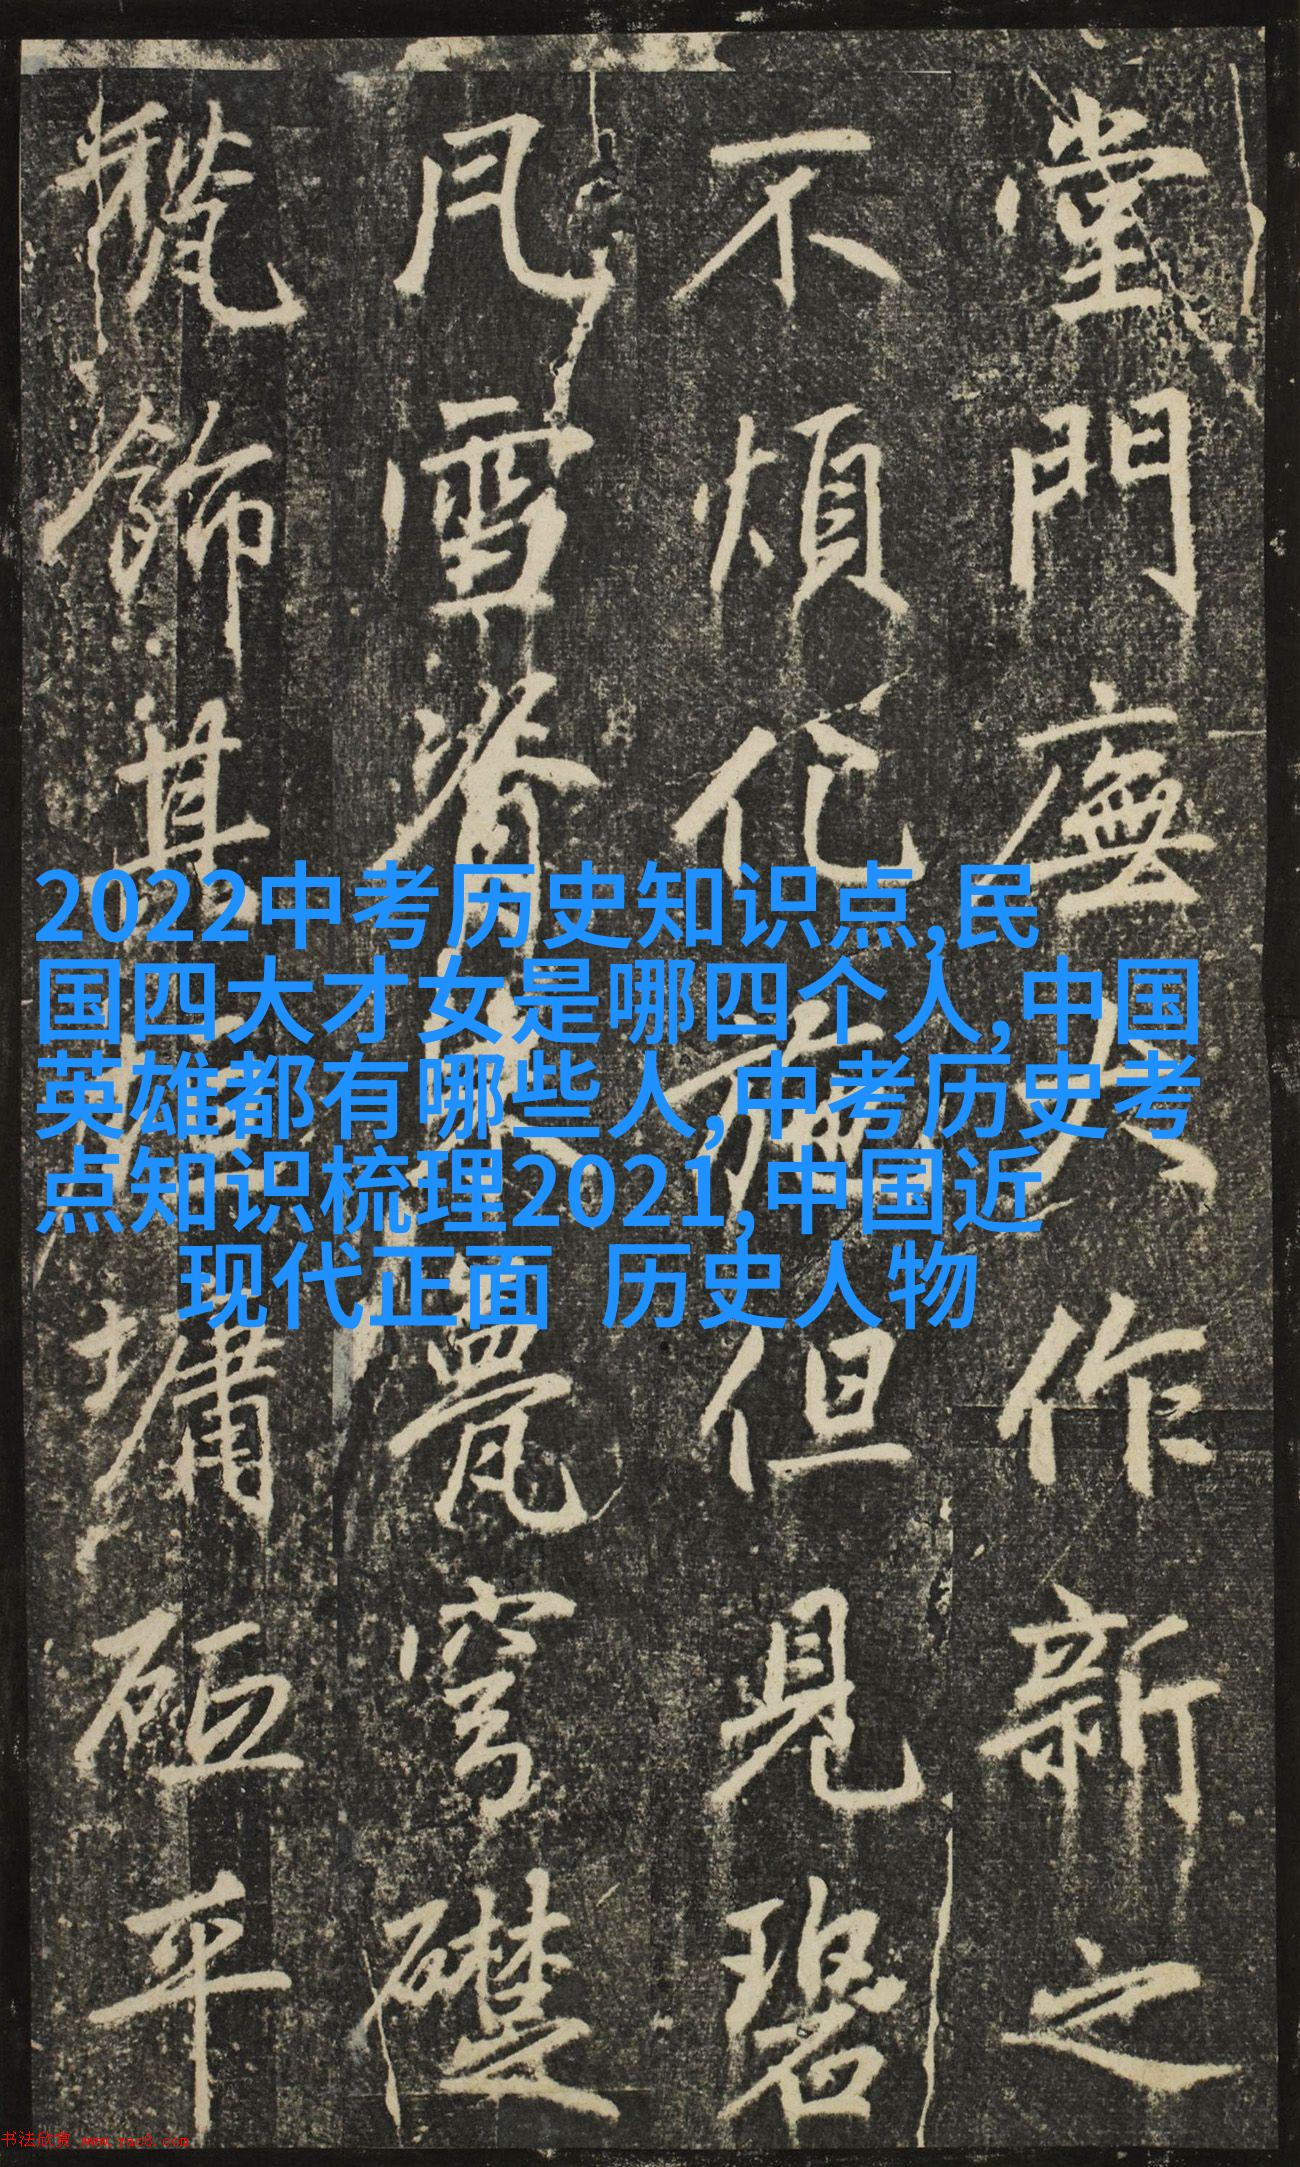 堂門廡大作新之
不煩化施但見碧
瓦雪脊甍穹礎
飾其垣墉砥平
2022中考历史知识点,民
国四大才女是哪四个人,中国
英雄都有哪些人,中考历史考
点知识梳理2021,中国近
现代正面 历史人物
书法欣赏 www.yac8.com